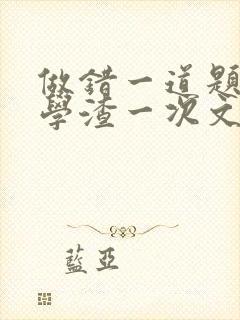 做錯一道題
學渣一次文
藍亞